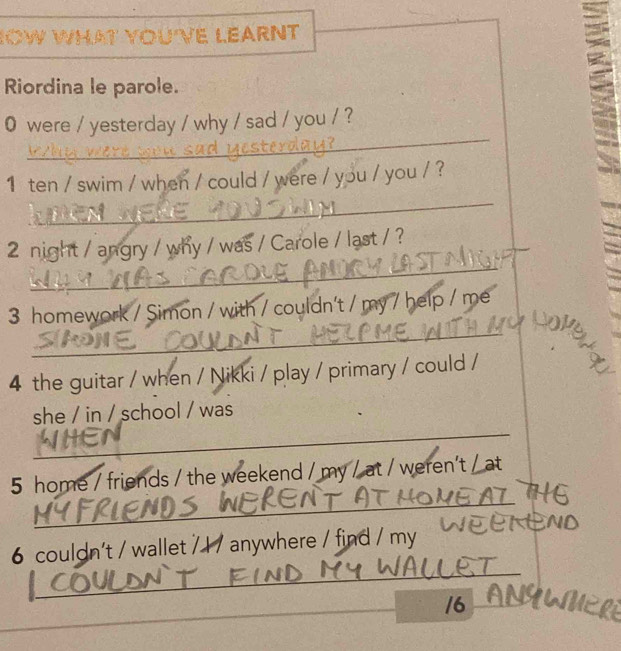 OW WHAT YOU'VE LEARNT
Riordina le parole.
0 were / yesterday / why / sad / you / ?
Why were you sad yesterday?
1 ten / swim / when / could / were / you / you / ?
WHEN WERE YOU SWIM
2 night / angry / why / was / Carole / last / ?
WHY WAS CAROLE ANGRY LAST NIGHT
3 homework / Simon / with / couldn't / my / help / me
SIMONE COULDN'T HELP ME WITH MY
4 the guitar / when / Nikki / play / primary / could /
she / in / school / was
WHEN
5 home / friends / the weekend / my / at / weren't / at
MY FRIENDS WERENT AT HOME AT THE
WEEKEND
6 couldn't / wallet / I / anywhere / find / my
I COULDN'T FIND MY WALLET
/6 ANYWHERE